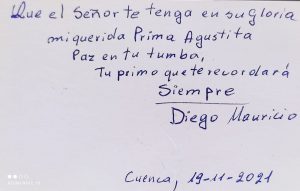 Que el Señor te tenga en su Gloria
mi querida Prima Agustita
Paz en tu tumba,
Tu primo que te recordará
Siempre
Diego Mauricio
Cuenca, 19-11-2021